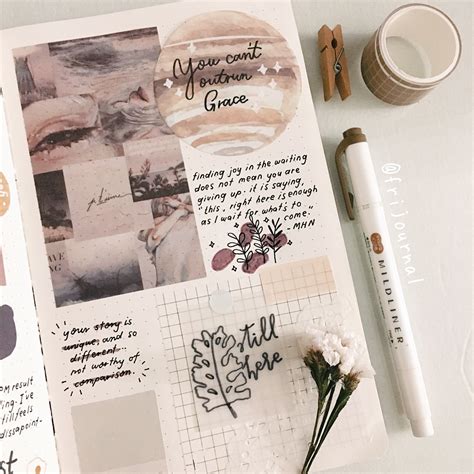 You can't
outrun
Grace
finding joy in the waiting
does not mean you are
giving up. it is saying,
"this, right here is enough
as I wait for what's to
come."
-MHN
your story is
unique, and so
different
not worthy of
comparison.
still
here
result
I've
still feels
dissapoint-
MILDLINER
@frijournal